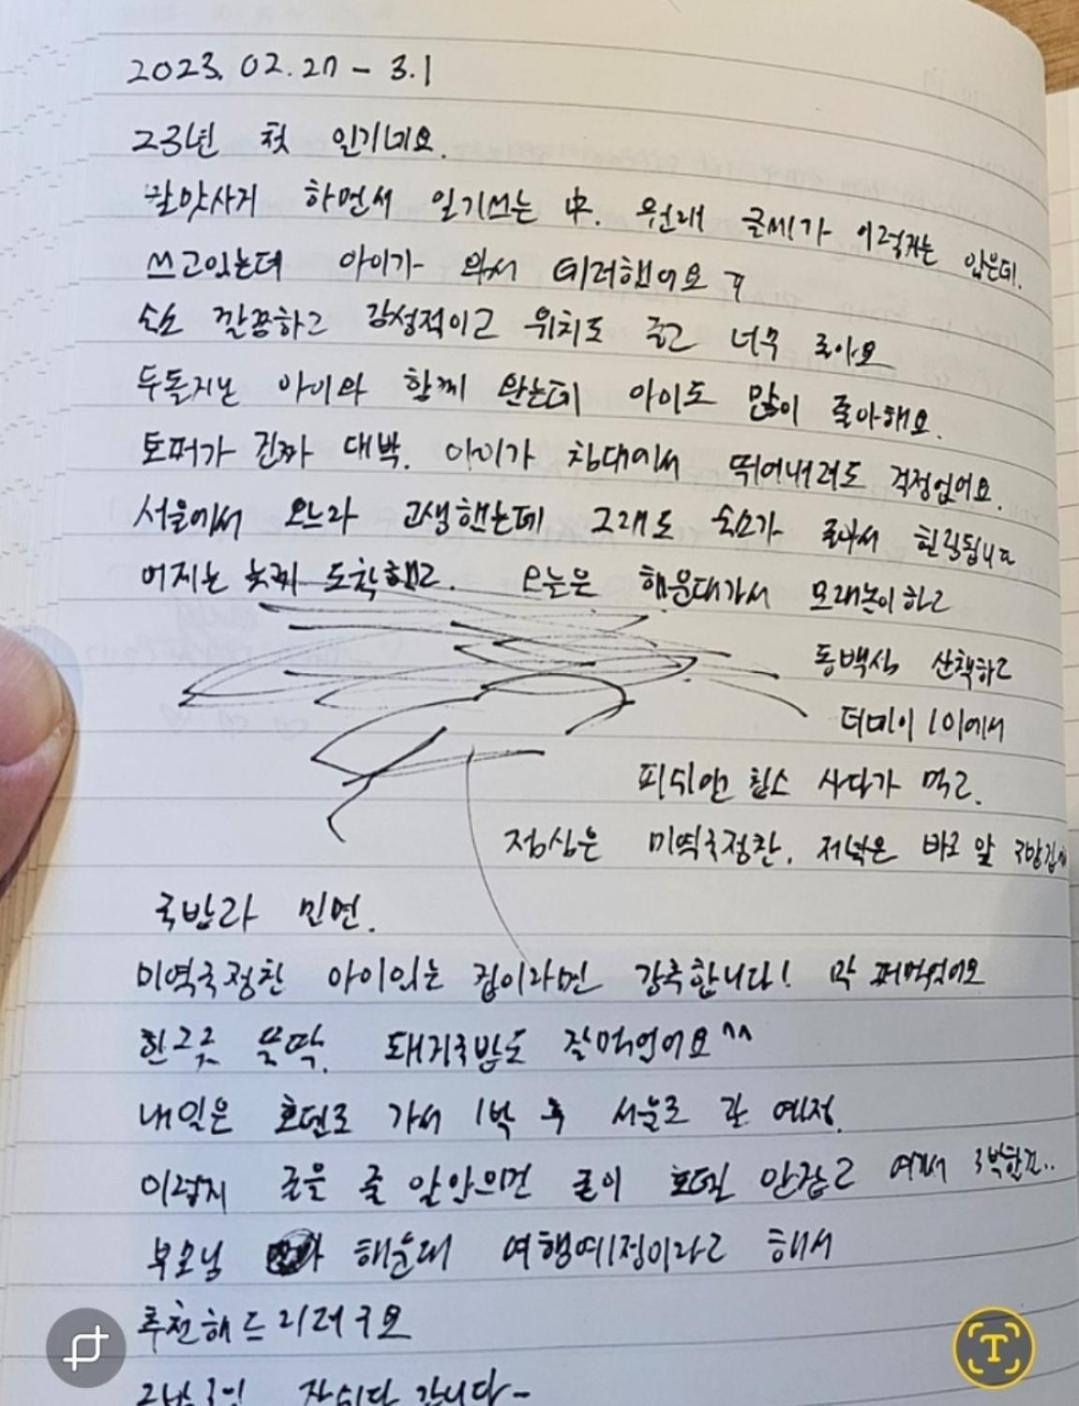 2023. 02.27 - 3.1
23년 첫 일기네요.
발맛사지 하면서 일기쓰는 中. 원래 글씨가 이렇지는 않은데.
쓰고있는데 아이가 와서 테러했어요 ㅠ
숙소 깔끔하고 감성적이고 위치도 좋고 너무 좋아요
두돌지난 아이와 함께 왔는데 아이도 많이 좋아해요.
토퍼가 진짜 대박. 아이가 침대에서 뛰어내려도 걱정없어요.
서울에서 오느라 고생했는데 그래도 숙소가 좋아서 힐링됩니다
어제는 늦게 도착했고. 오늘은 해운대가서 모래놀이하고
동백섬 산책하고
더베이 101에서
피쉬앤 칩스 사다가 먹고.
점심은 미역국정찬. 저녁은 바로 앞
국밥과 밀면.
미역국정찬 아이있는 집이라면 강추합니다! 막 퍼먹었어요
한그릇 뚝딱. 돼지국밥도 잘먹었어요^^
내일은 호텔로 가서 1박 후 서울로 갈 예정.
이렇게 좋을 줄 알았으면 굳이 호텔 안잡고 여기서 3박할걸..
부모님 해운대 여행예정이라고 해서
추천해드리려구요
2박3일 잘쉬다 갑니다~